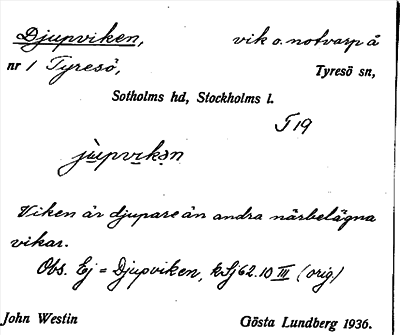 Djupviken, vik o. notvarp å
nr 1 Tyresö, Tyresö sn,
Sotholms hd, Stockholms l.
T 19
jùpvikən
Viken är djupare än andra närbelägna
vikar.
Obs. Ej = Djupviken, k Sj 62. 10 III (orig.)
John Westin Gösta Lundberg 1936.